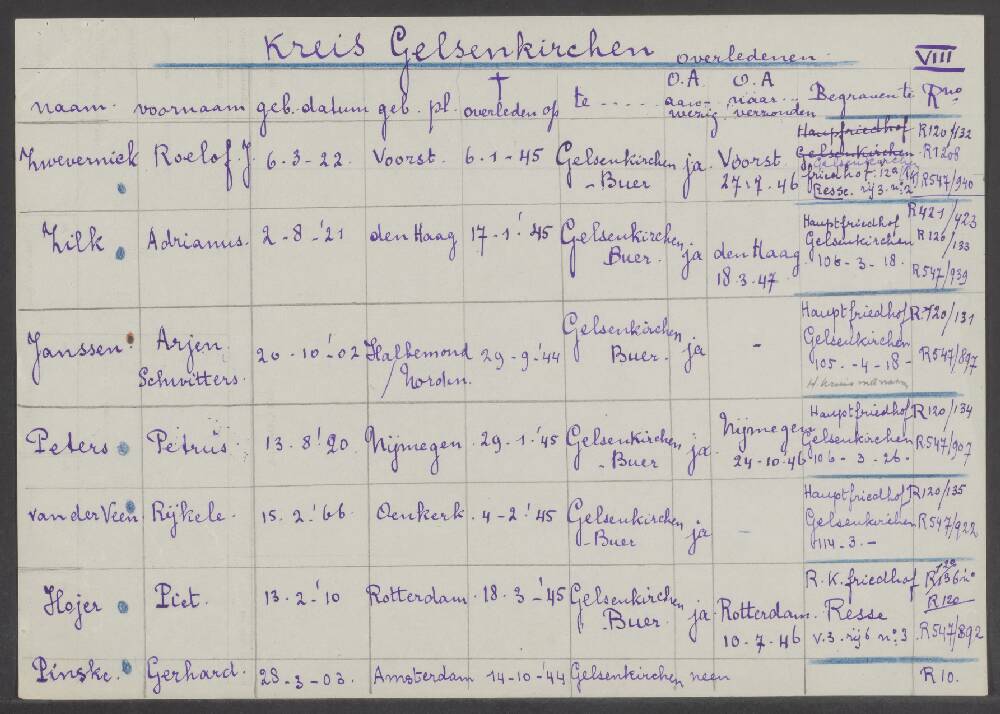 Kreis Gelsenkirchen overledenen VIII
naam. voornaam geb. datum geb. pl. † overleden op te ..... O.A. aanwezig O.A naar... verzonden Begraven te Rno
Zwevernick Roelof J. 6-3-22. Voorst. 6-1-45 Gelsenkirchen ja. Voorst Hauptfriedhof R120/132
-Buer 27.7.46 Gelsenkirchen R1208
Gelsenkirchen
friedhof. 12a
Resse. rij 3. no 2 R547/940
Zilk Adrianus. 2-8-'21 den Haag 17-1-'45 Gelsenkirchen ja den Haag Hauptfriedhof R421/423
Buer. 18.3.47 Gelsenkirchen R126/133
106-3-18. R547/939
Janssen Arjen. 20-10-'02 Halbemond 29-9-'44 Gelsenkirchen ja - Hauptfriedhof R120/131
Schwitters. /Norden. Buer. Gelsenkirchen R547/897
105.-4-18-
Peters Petrus 13-8-'20 Nijmegen 29-1-'45 Gelsenkirchen ja. Nijmegen Hauptfriedhof R120/134
-Buer 24-10-46 Gelsenkirchen R547/907
106-3-26-
van der Veen Rijkele. 15.2.'66 Oenkerk. 4-2-'45 Gelsenkirchen ja - Hauptfriedhof R120/135
-Buer Gelsenkirchen R547/922
114-3.-
Hojer Piet. 13-2-'10 Rotterdam. 18-3-'45 Gelsenkirchen ja. Rotterdam. R.K. friedhof
-Buer. 10-7-46 Resse R120
v.3. rij 6 no. 3 R547/892
Pinske. Gerhard. 28-3-03. Amsterdam 14-10-'44 Gelsenkirchen neen R10.